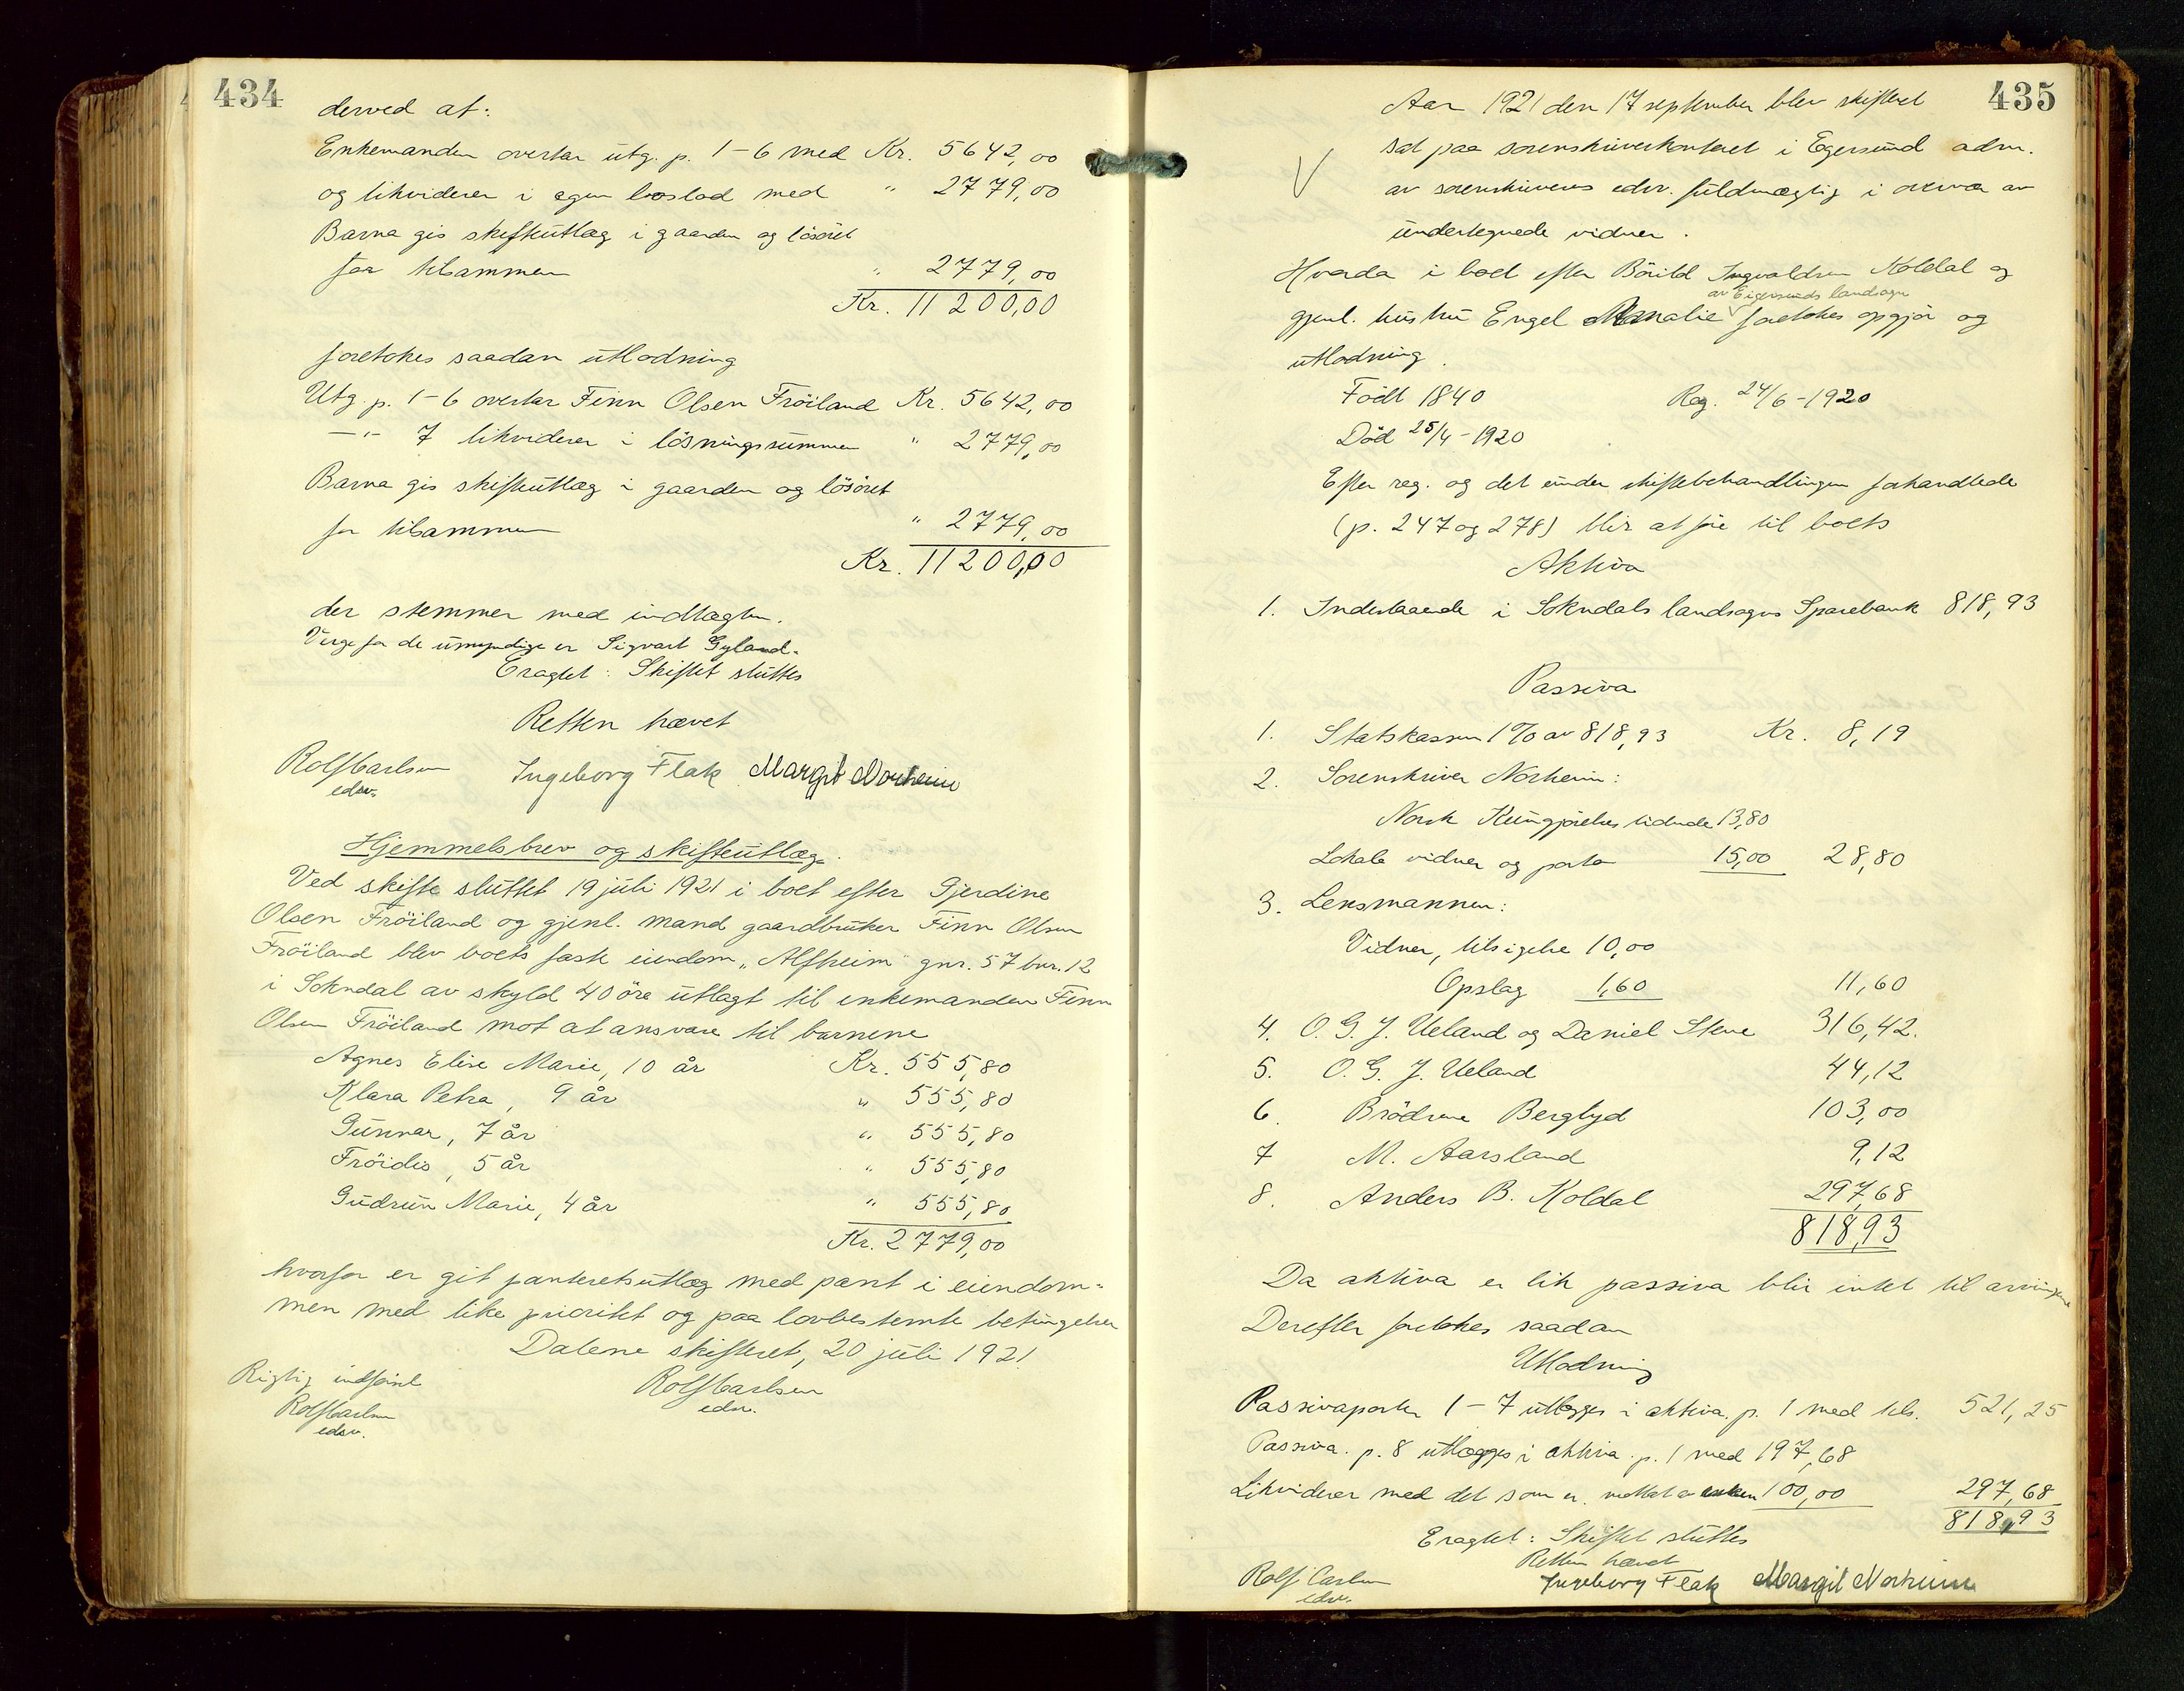 434
derved at:
Enkemanden overtar utg. p. 1-6 med Kr. 5642,00
og likviderer i egen boslod med " 2779,00
Barna gis skifteutlæg i gaarden og lösöret
for tilsammen " 2779,00
Kr. 11200,00
foretokes saadan utlodning
Utg. p. 1-6 overtar Finn Olsen Fröiland Kr. 5642,00
-"- 7 likviderer i lösningssummen " 2779,00
Barna gis skifteutlæg i gaarden og lösöret
for tilsammen " 2779,00
Kr. 11200,00
der stemmer med indtægten.
Verge for de umyndige er Sigvart Gyland.
Eragtet: Skiftet sluttes
Retten hævet
Rolf Carlsen Ingeborg Flak Margit Norheim
edsv.
Hjemmelsbrev og skifteutlæg.
Ved skifte sluttet 19 juli 1921 i boet efter Gjerdine
Olsen Fröiland og gjenl. mand gaardbruker Finn Olsen
Fröiland blev boets faste eiendom "Alfheim" gnr. 57 bnr. 12
i Sokndal av skyld 40 öre utlagt til enkemanden Finn
Olsen Fröiland mot at ansvare til barnene
Agnes Elise Marie, 10 år Kr. 555,80
Klara Petra, 9 år " 555,80
Gunnar, 7 år " 555,80
Fröidis, 5 år " 555,80
Gudrun Marie, 4 år " 555,80
Kr. 2779,00
hvorfor er git panteretsutlæg med pant i eiendom=
men med like prioritet og paa lovbestemte betingelser
Dalene skifteret, 20 juli 1921
Rigtig indført Rolf Carlsen
Rolf Carlsen edsv.
edsv.
435
Aar 1921 den 17 september blev skifteret
sat paa sorenskriverkontoret i Egersund adm.
av sorenskriverens edsv. fuldmægtig i overvær av
undertegnede vidner.
Hvorda i boet efter Börild Ingvaldsen Koldal og
av Eigersunds landsogn
gjenl. hustru Engel Amalie foretokes opgjør og
utlodning.
Født 1840 Reg. 24/6-1920
Död 25/4-1920
Efter reg. og det under skiftebehandlingen forhandlede
(p. 247 og 278) blir at føre til boets
Aktiva
1. Indestaaende i Sokndals landsogns Sparebank 818,93
Passiva
1. Statskassen 1% av 818,93 Kr. 8,19
2. Sorenskriver Norheim:
Norsk Kungjørelses tidende 13,80
Lokale vidner og porto 15,00 28,80
3. Lensmannen:
Vidner, tilsigelse 10,00
Opslag 1,60 11,60
4. O. G. J. Ueland og Daniel Stene 316,42.
5. O. G. J. Ueland 44,12
6. Brödrene Berglyd 103,00
7 M. Aarsland 9,12
8. Anders B. Koldal 297,68
818,93
Da aktiva er lik passiva blir intet til arvingene
Derefter foretokes saadan
Utlodning
Passivaposter 1-7 utlægges i aktiva. p. 1 med tils. 521,25
Passiva. p. 8 utlægges i aktiva. p. 1 med 197,68
Likviderer med det som er mottat av enken 100,00 297,68
818,93
Eragtet: Skiftet sluttes
Retten hævet
Rolf Carlsen Ingeborg Flak Margit Norheim
edsv.